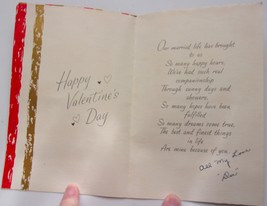 Happy
Valentine's
Day
Our married life has brought
to us
So many happy hours,
We've had such real
companionship
Through sunny days and
showers,
So many hopes have been
fulfilled
So many dreams come true,
The best and finest things
in life
Are mine because of you.
All My Love